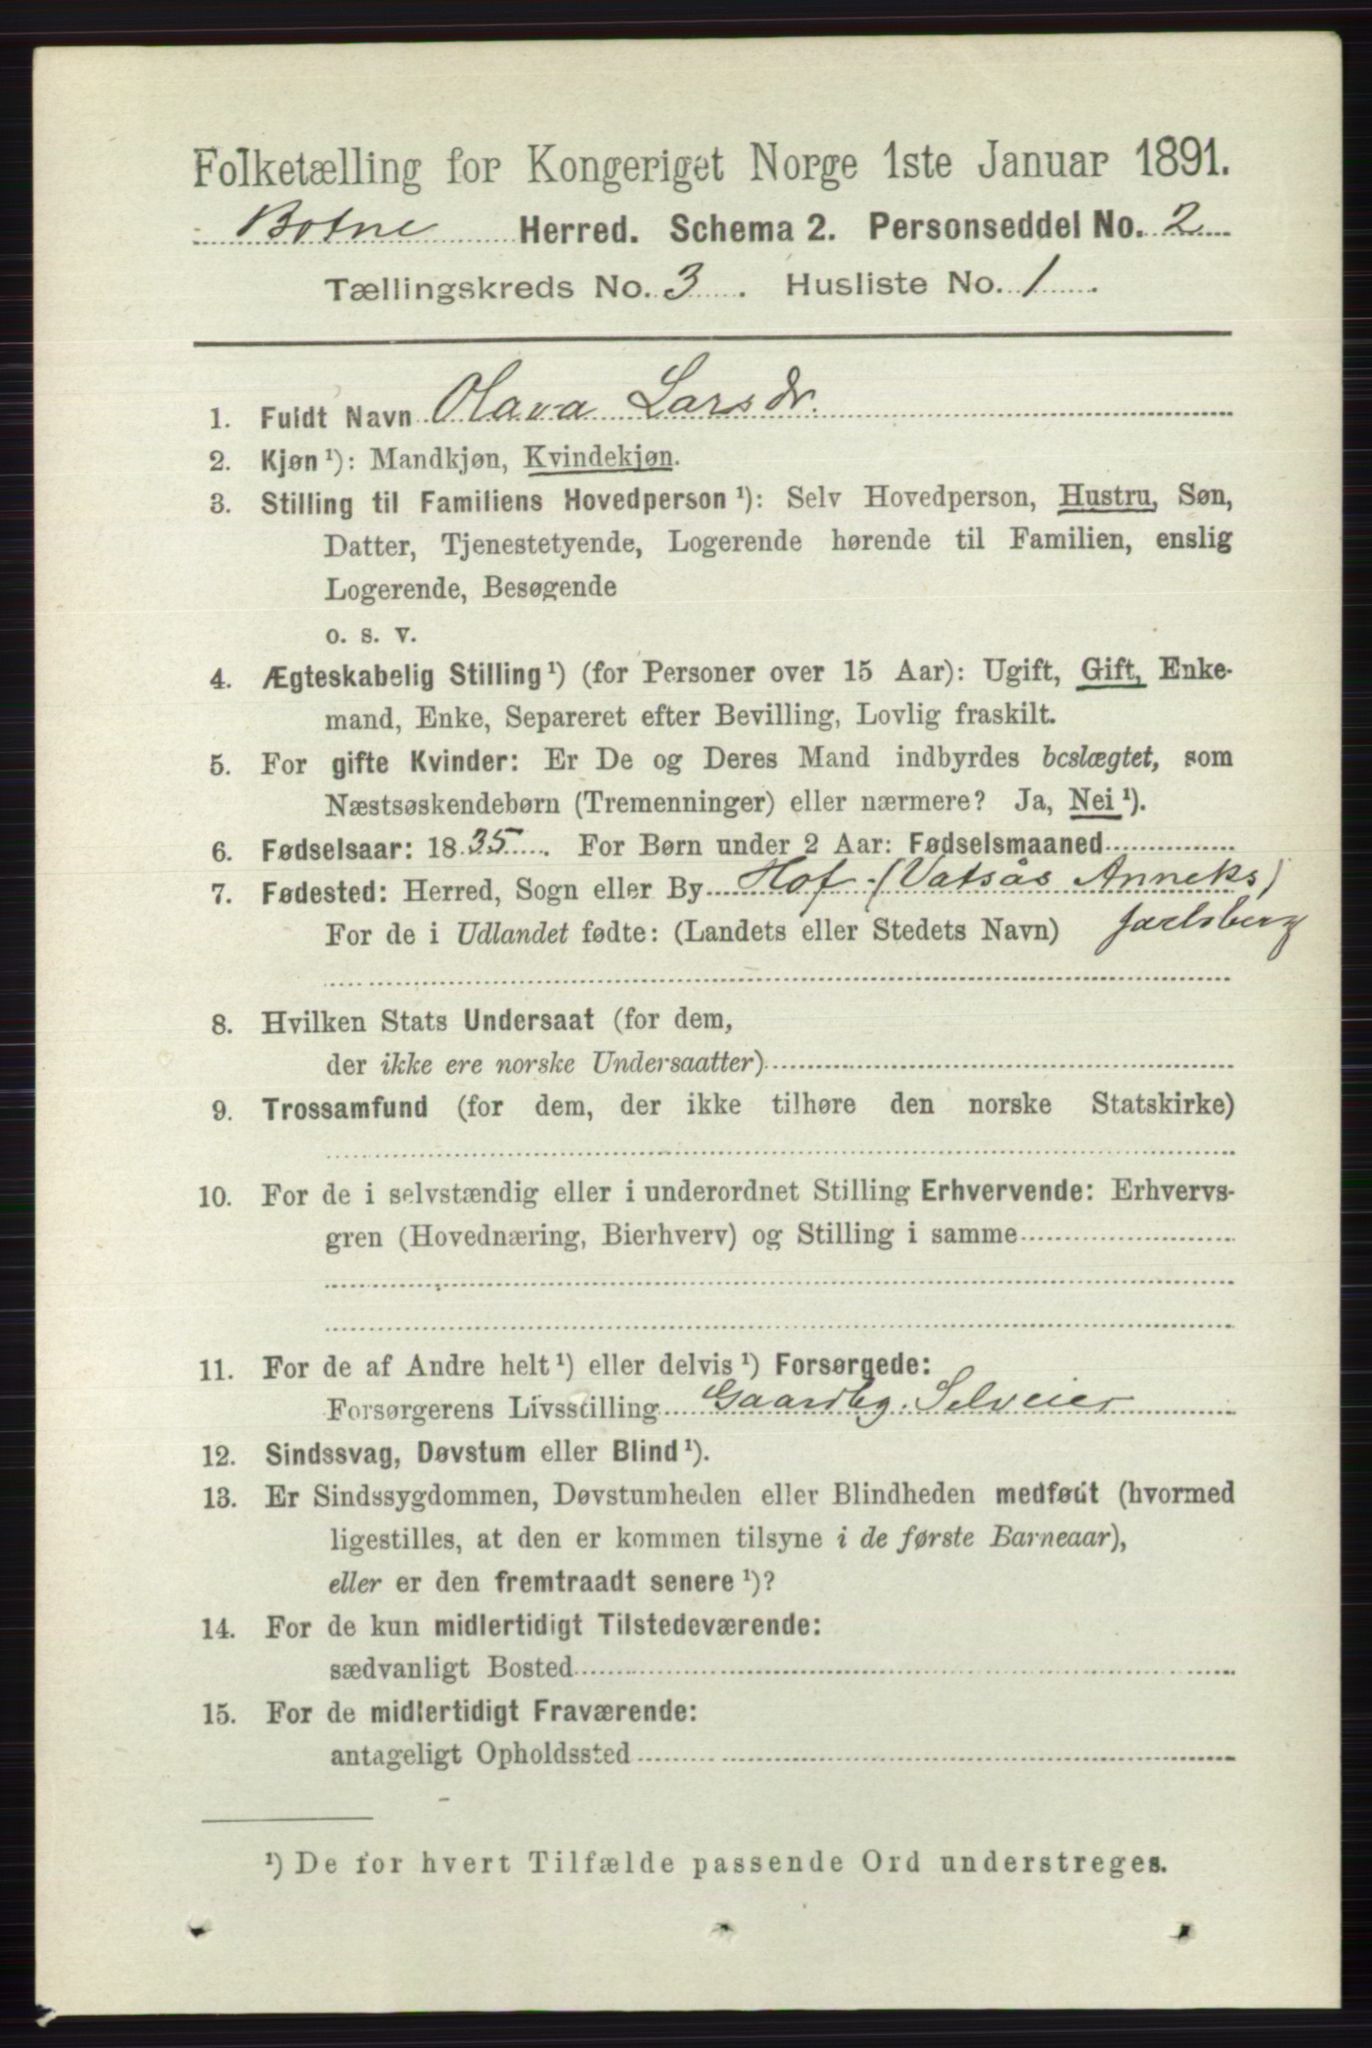 Folketælling for Kongeriget Norge 1ste Januar 1891.
Botne Herred. Schema 2. Personseddel No. 2
Tællingskreds No. 3. Husliste No. 1.
1. Fuldt Navn Olava Larsdr.
2. Kjøn ¹): Mandkjøn, Kvindekjøn.
3. Stilling til Familiens Hovedperson ¹): Selv Hovedperson, Hustru, Søn,
Datter, Tjenestetyende, Logerende hørende til Familien, enslig
Logerende, Besøgende
o. s. v.
4. Ægteskabelig Stilling ¹) (for Personer over 15 Aar): Ugift, Gift, Enke-
mand, Enke, Separeret efter Bevilling, Lovlig fraskilt.
5. For gifte Kvinder: Er De og Deres Mand indbyrdes beslægtet, som
Næstsøskendebørn (Tremenninger) eller nærmere? Ja, Nei ¹).
6. Fødselsaar: 1835. For Børn under 2 Aar: Fødselsmaaned
7. Fødested: Herred, Sogn eller By Hof (Vatsås Anneks)
For de i Udlandet fødte: (Landets eller Stedets Navn) Jarlsberg
8. Hvilken Stats Undersaat (for dem,
der ikke ere norske Undersaatter)
9. Trossamfund (for dem, der ikke tilhøre den norske Statskirke)
10. For de i selvstændig eller i underordnet Stilling Erhvervende: Erhvervs-
gren (Hovednæring, Bierhverv) og Stilling i samme
11. For de af Andre helt ¹) eller delvis ¹) Forsørgede:
Forsørgerens Livsstilling Gaardbg. Selveier
12. Sindssvag, Døvstum eller Blind ¹).
13. Er Sindssygdommen, Døvstumheden eller Blindheden medfødt (hvormed
ligestilles, at den er kommen tilsyne i de første Barneaar),
eller er den fremtraadt senere ¹)?
14. For de kun midlertidigt Tilstedeværende:
sædvanligt Bosted
15. For de midlertidigt Fraværende:
antageligt Opholdssted
¹) De for hvert Tilfælde passende Ord understreges.